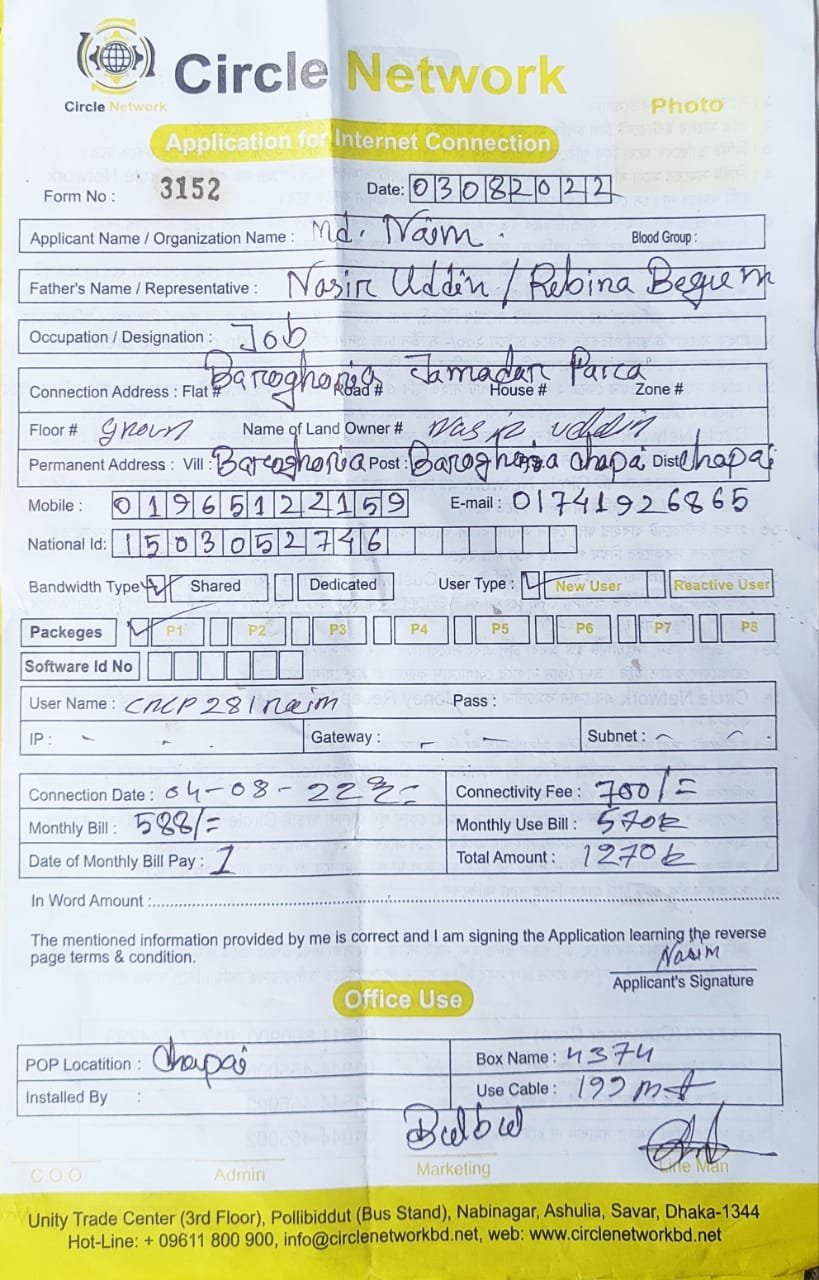 Circle Network
Circle Network
Photo
Application for Internet Connection
Form No : 3152 Date: 03082022
Applicant Name / Organization Name : Md. Naim. Blood Group :
Father's Name / Representative : Nasir Uddin / Rebina Begum
Occupation / Designation : Job
Baroghoria Jamadar Para
Connection Address : Flat # Road # House # Zone #
Floor # groun Name of Land Owner # Nasir uddin
Permanent Address : Vill : Baroghoria Post : Baroghoria P.S. chapai Dist: Chapai
Mobile : 01965122159 E-mail : 01741926865
National Id: 1503052746
Bandwidth Type Shared Dedicated User Type : New User Reactive User
Packeges P1 P2 P3 P4 P5 P6 P7 P8
Software Id No
User Name : CNCP281Naim Pass :
IP : - - . Gateway : - - Subnet : - - .
Connection Date : 04-08-22 Connectivity Fee : 700/=
Monthly Bill : 588/= Monthly Use Bill : 570
Date of Monthly Bill Pay : 1 Total Amount : 1270
In Word Amount :
The mentioned information provided by me is correct and I am signing the Application learning the reverse
page terms & condition.
Nasim
Applicant's Signature
Office Use
POP Locatition : Chapai Box Name : 4374
Installed By : Use Cable : 199 mt
Bulbul
C.O.O Admin Marketing Line Man
Unity Trade Center (3rd Floor), Pollibiddut (Bus Stand), Nabinagar, Ashulia, Savar, Dhaka-1344
Hot-Line: + 09611 800 900, info@circlenetworkbd.net, web: www.circlenetworkbd.net